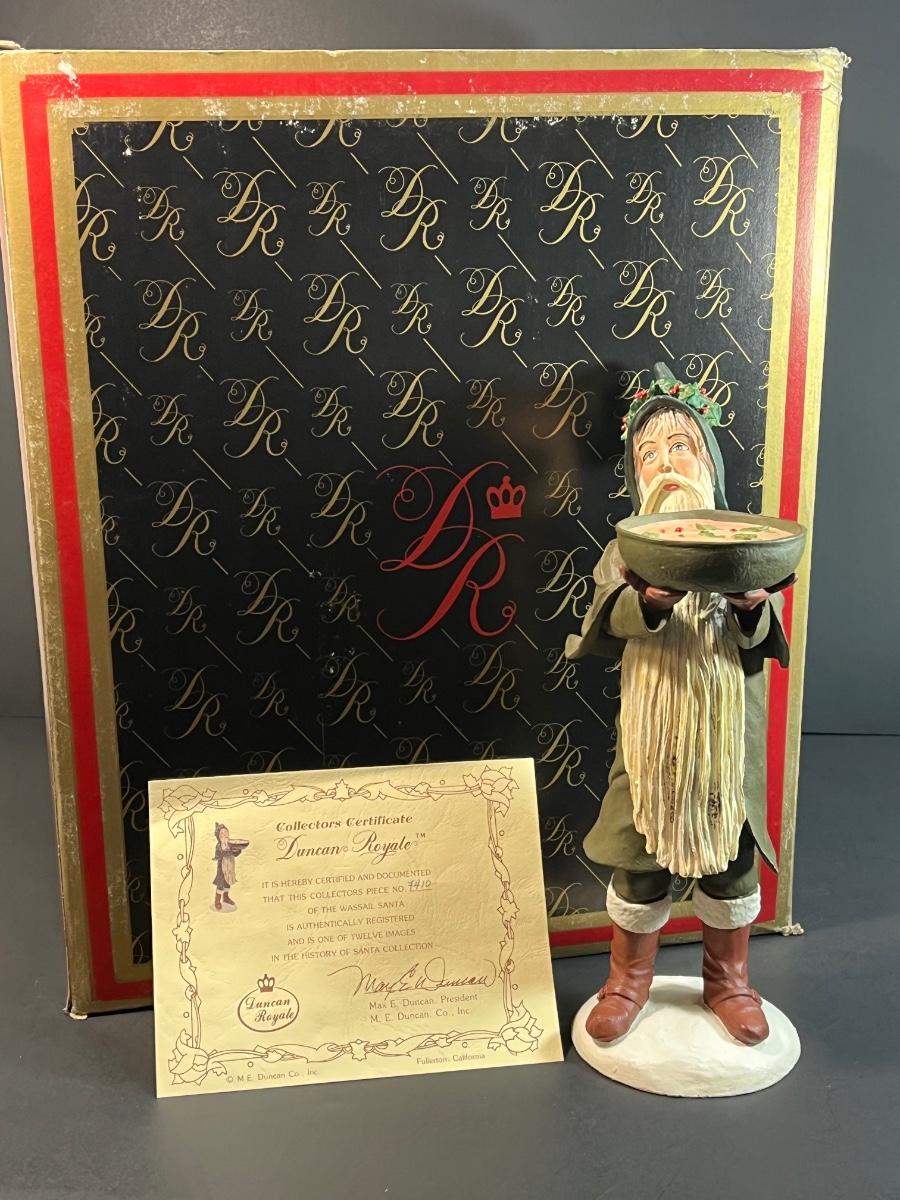 DR
Collectors Certificate
Duncan Royale™
IT IS HEREBY CERTIFIED AND DOCUMENTED
THAT THIS COLLECTORS PIECE NO. 7410
OF THE WASSAIL SANTA
IS AUTHENTICALLY REGISTERED
AND IS ONE OF TWELVE IMAGES
IN THE HISTORY OF SANTA COLLECTION
Max E. Duncan
Duncan
Royale
Max E. Duncan, President
M. E. Duncan, Co., Inc.
Fullerton, California
© M.E. Duncan Co., Inc.